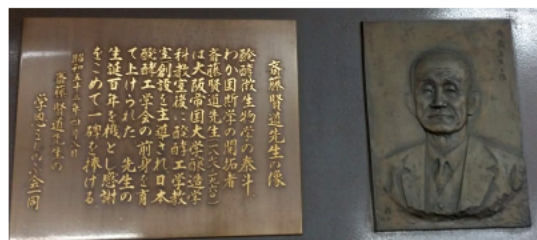 斎藤賢道先生の像
醗酵微生物学の泰斗、
わが国断学の開拓者
斎藤賢道先生(一八七八~一九六〇)
は大阪帝国大学醸造学
科教室後に醗酵工学教
室創設を主導され日本
醗酵工学会の前身を育
て上げられた 先生の
生誕百年を機とし感謝
をこめて一碑を捧げる
昭和五十三年四月八日
斎藤賢道先生の
学恩
会一同